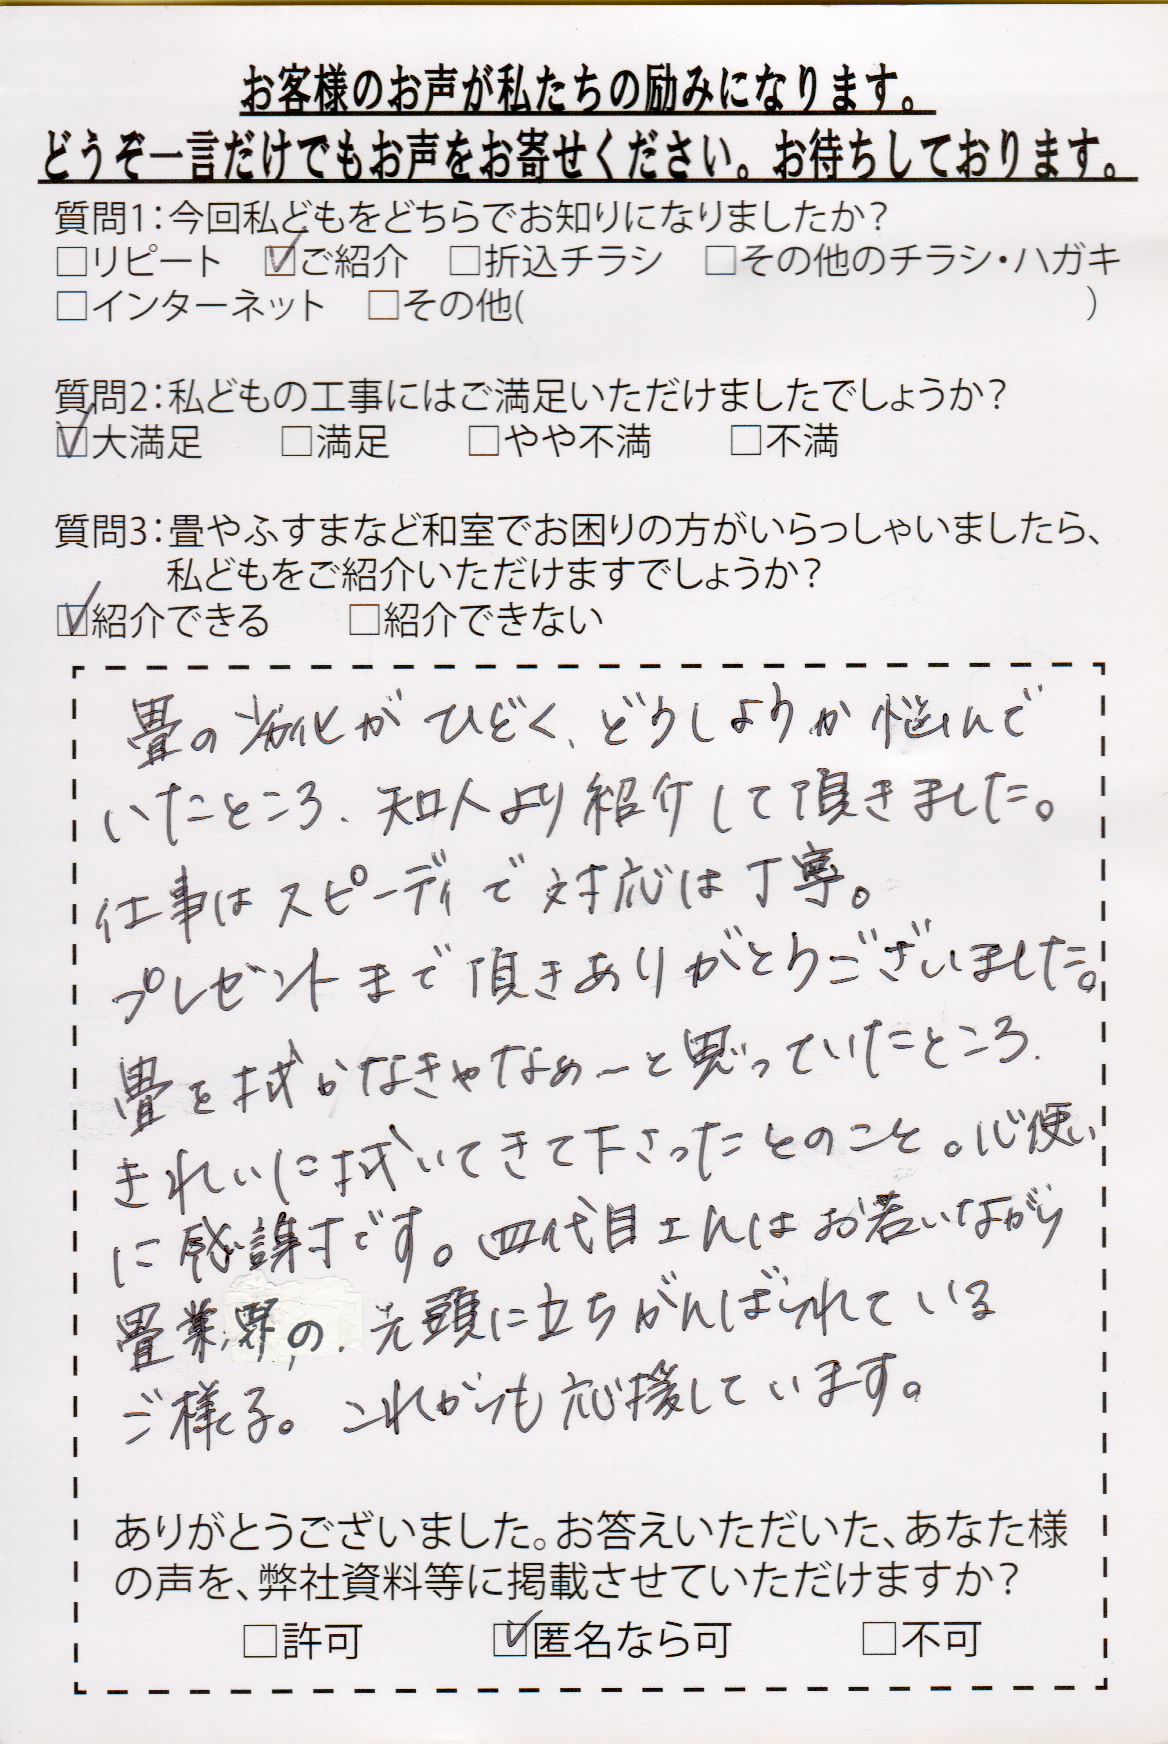 お客様のお声が私たちの励みになります。
どうぞ一言だけでもお声をお寄せください。お待ちしております。
質問1:今回私どもをどちらでお知りになりましたか?
□リピート ☑ご紹介 □折込チラシ □その他のチラシ・ハガキ
□インターネット □その他( )
質問2:私どもの工事にはご満足いただけましたでしょうか?
☑大満足 □満足 □やや不満 □不満
質問3:畳やふすまなど和室でお困りの方がいらっしゃいましたら、
私どもをご紹介いただけますでしょうか?
☑紹介できる □紹介できない
畳の劣化がひどく、どうしようか悩んで
いたところ、知人より紹介して頂きました。
仕事はスピーディで対応は丁寧。
プレゼントまで頂きありがとうございました。
畳を拭かなきゃなぁーと思っていたところ、
きれいに拭いてきて下さったとのこと。心使い
に感謝です。四代目さんはお若いながら
畳業界の先頭に立ちがんばられている
ご様子。これからも応援しています。
ありがとうございました。お答えいただいた、あなた様
の声を、弊社資料等に掲載させていただけますか?
□許可 ☑匿名なら可 □不可